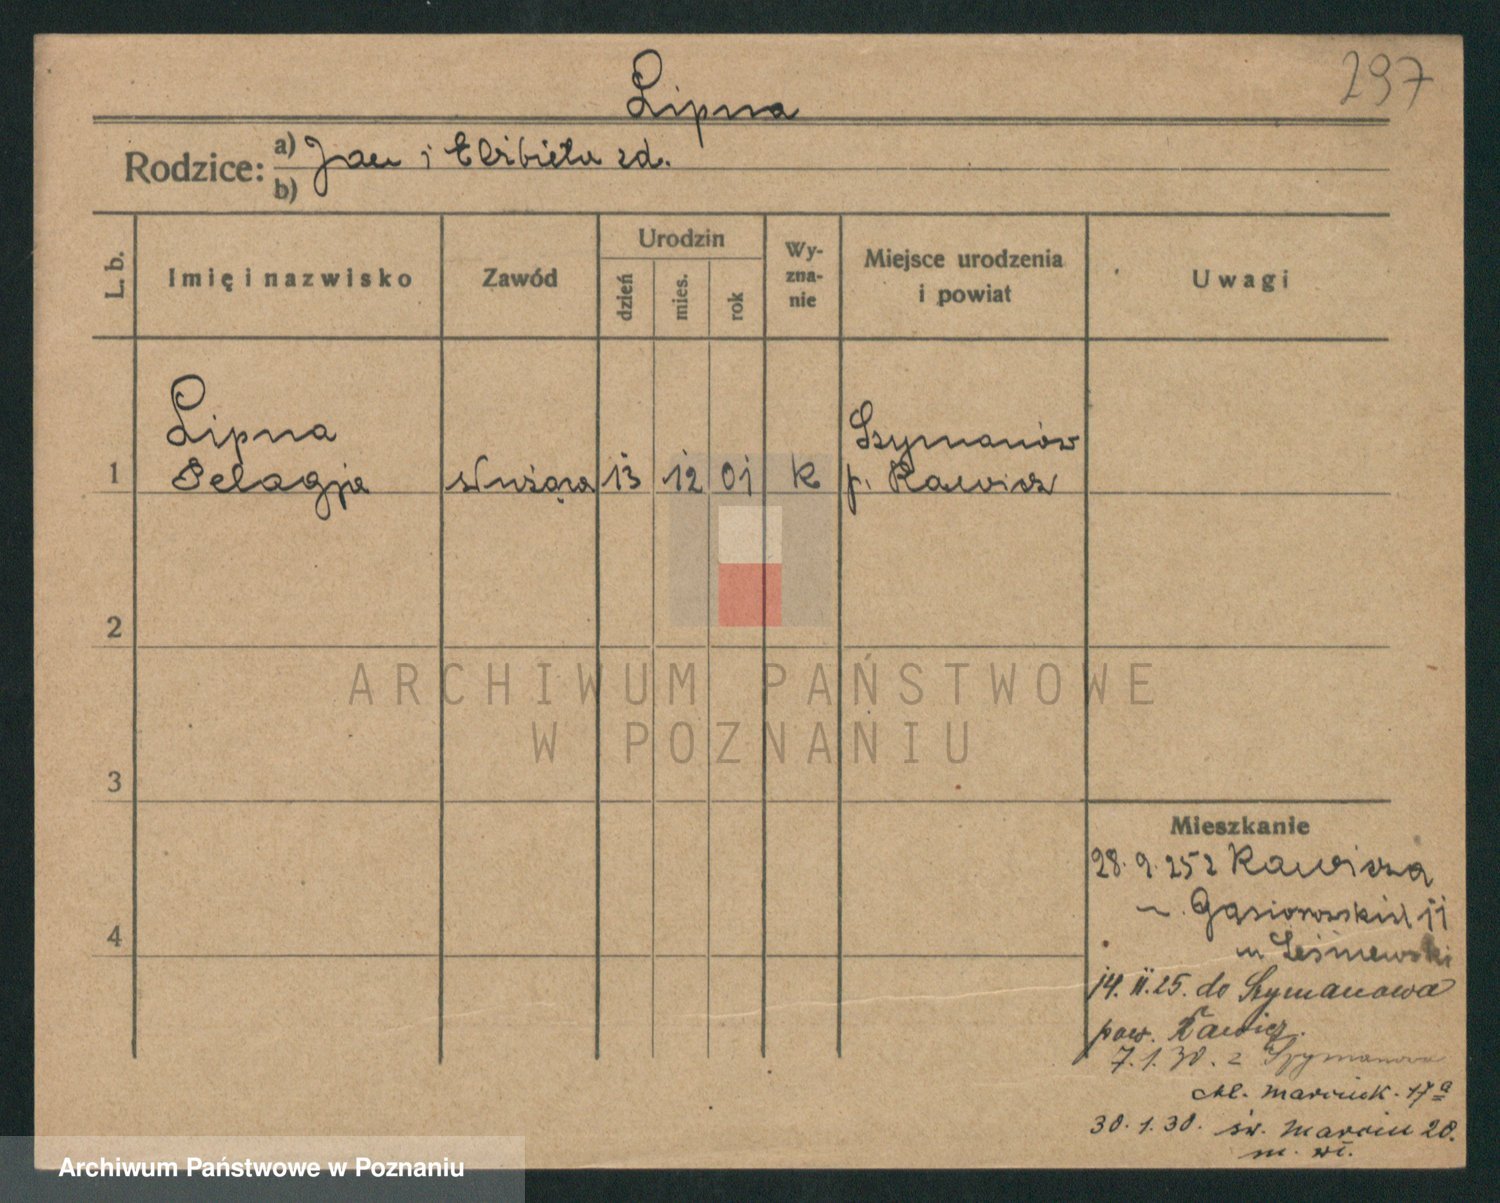 297
Lipna
Rodzice: a) Jan i Elżbieta zd.
b)
L. b.
Imię i nazwisko
Zawód
Urodzin
dzień
mies.
rok
Wy-
zna-
nie
Miejsce urodzenia
i powiat
Uwagi
Lipna
Pelagja
1
służąca
13
12
01
k
Szymanów
p. Rawicz
2
3
4
Mieszkanie
28. 9. 25 z Rawicza
Gąsiorowskich 11
m Leśniewski
14. 11. 25. do Szymanowa
pow. Rawicz.
7. 1. 30. z Szymanowa
17a
30. 1. 30. św. Marcin 20.
ARCHIWUM PAŃSTWOWE
W POZNANIU
Archiwum Państwowe w Poznaniu